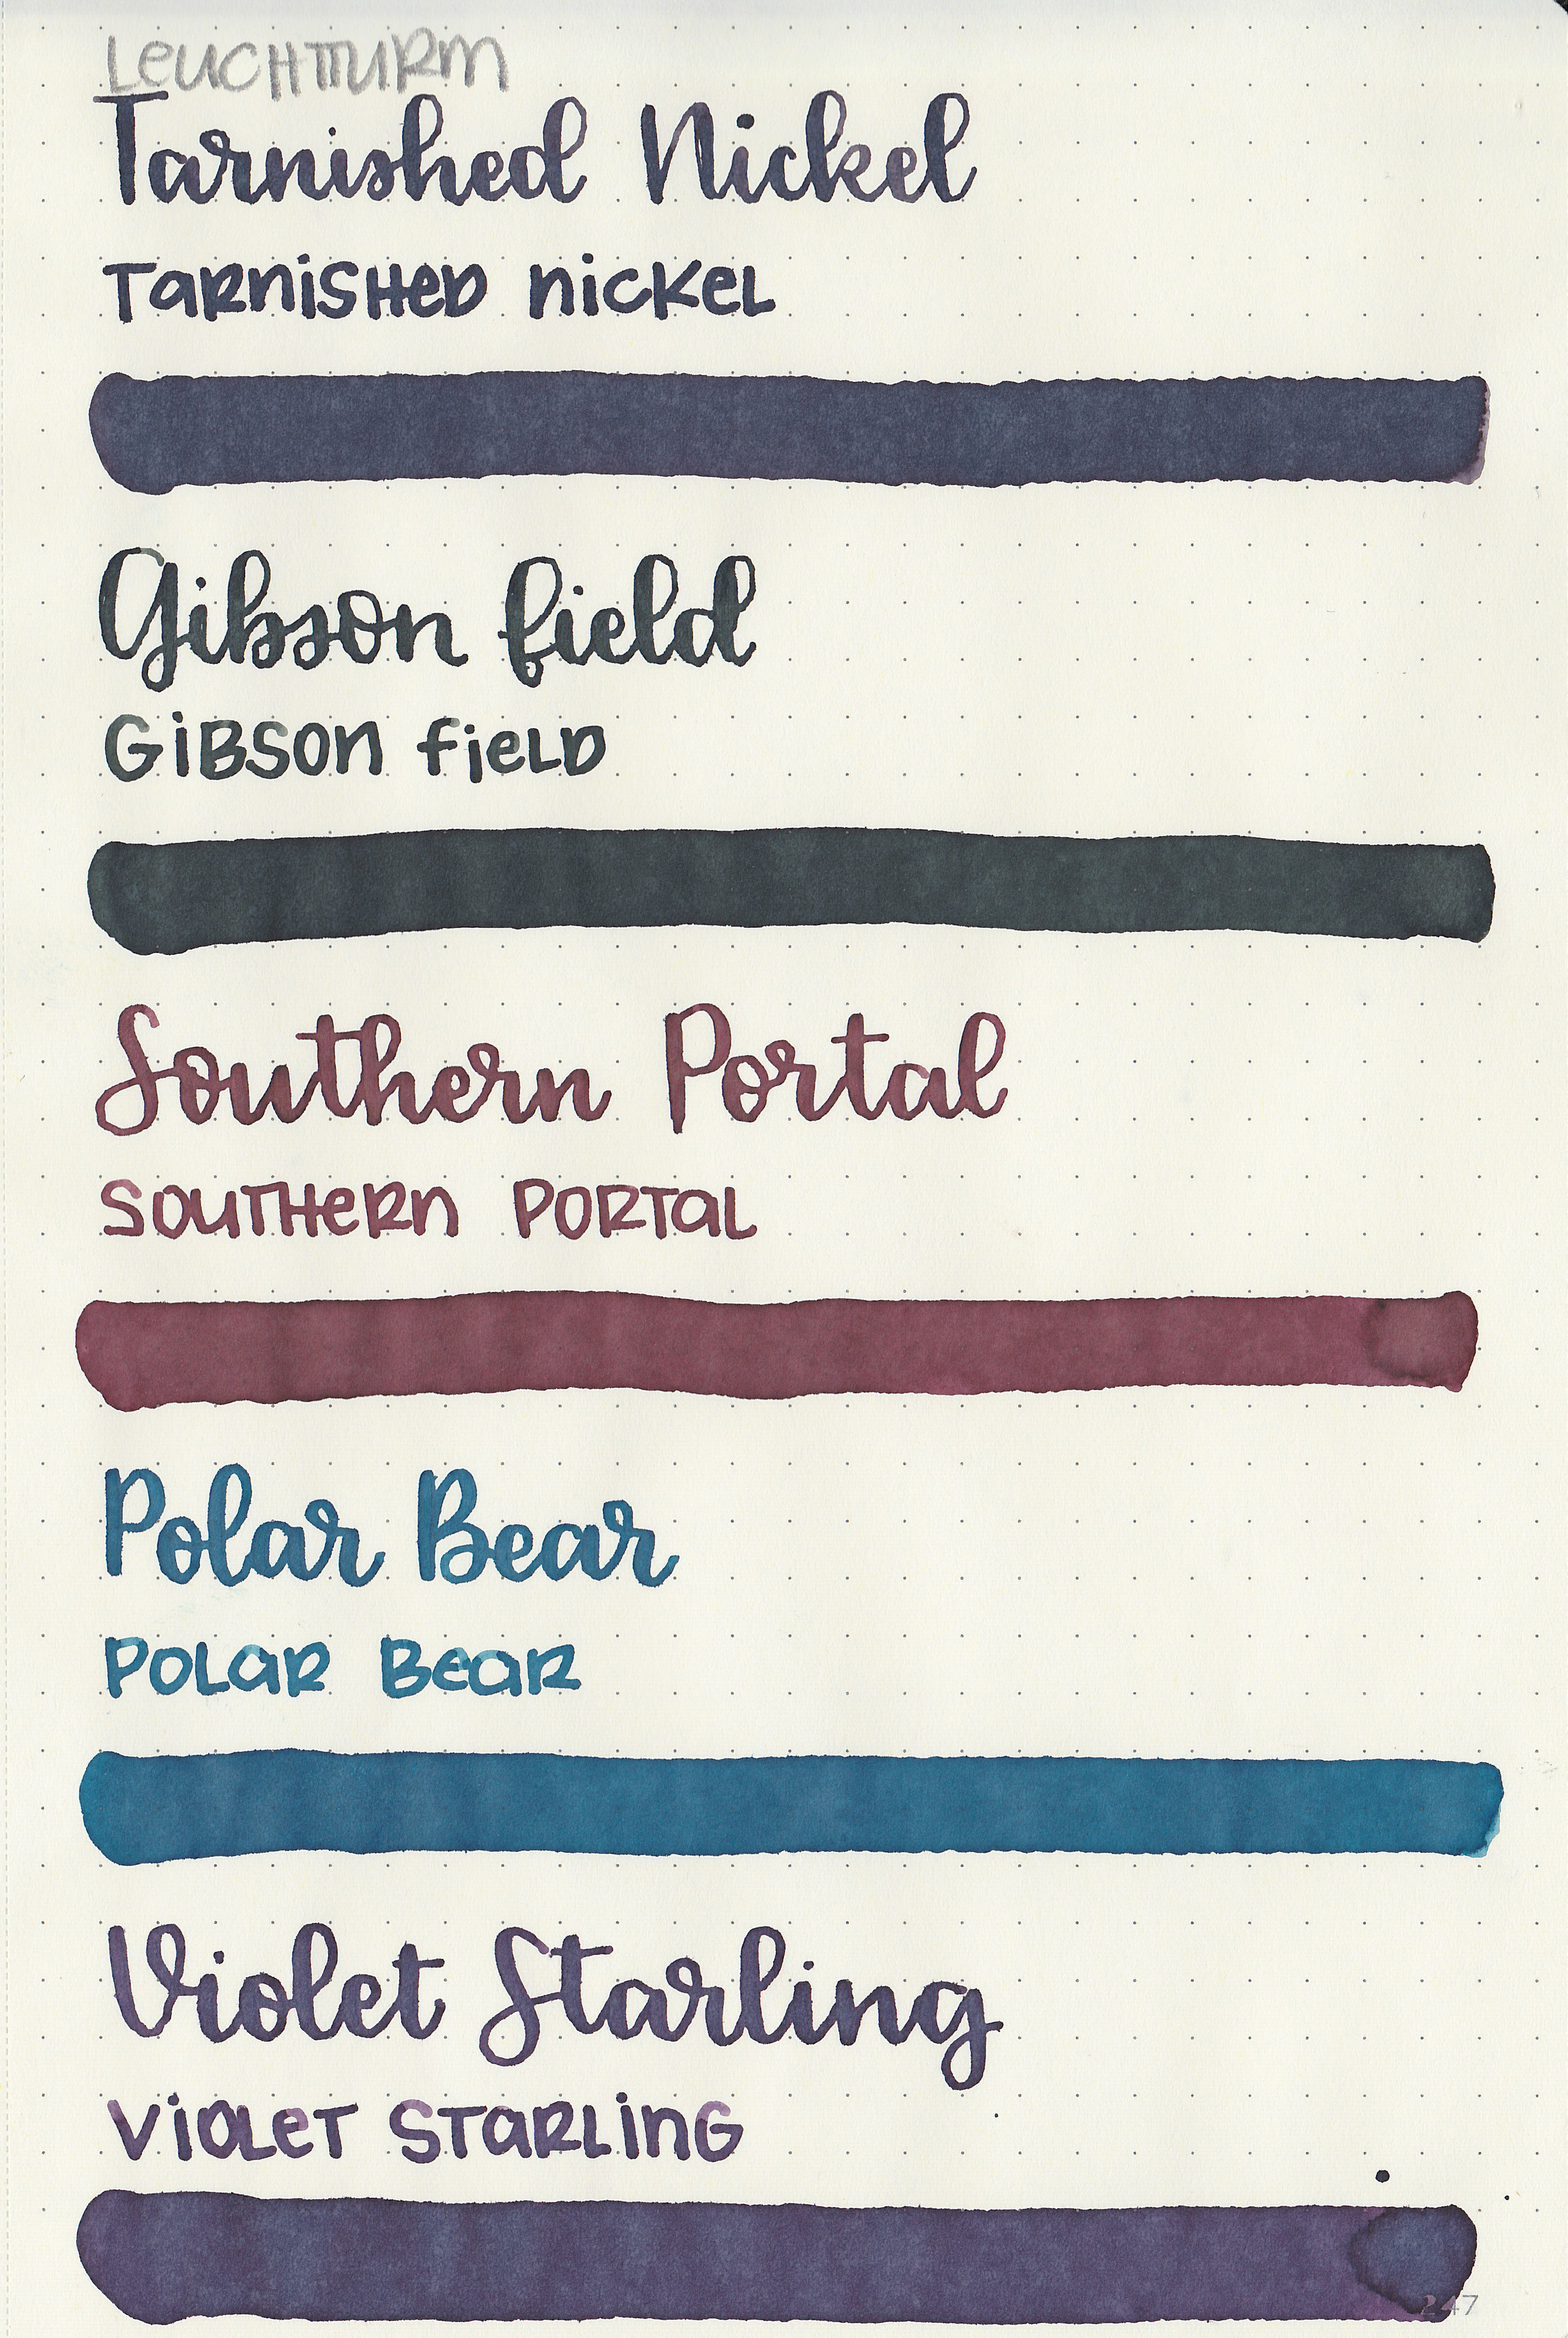 LEUCHTTURM
Tarnished Nickel
TARNISHED NICKEL
Gibson field
GIBSON FIELD
Southern Portal
SOUTHERN PORTAL
Polar Bear
POLAR BEAR
Violet Starling
VIOLET STARLING
247